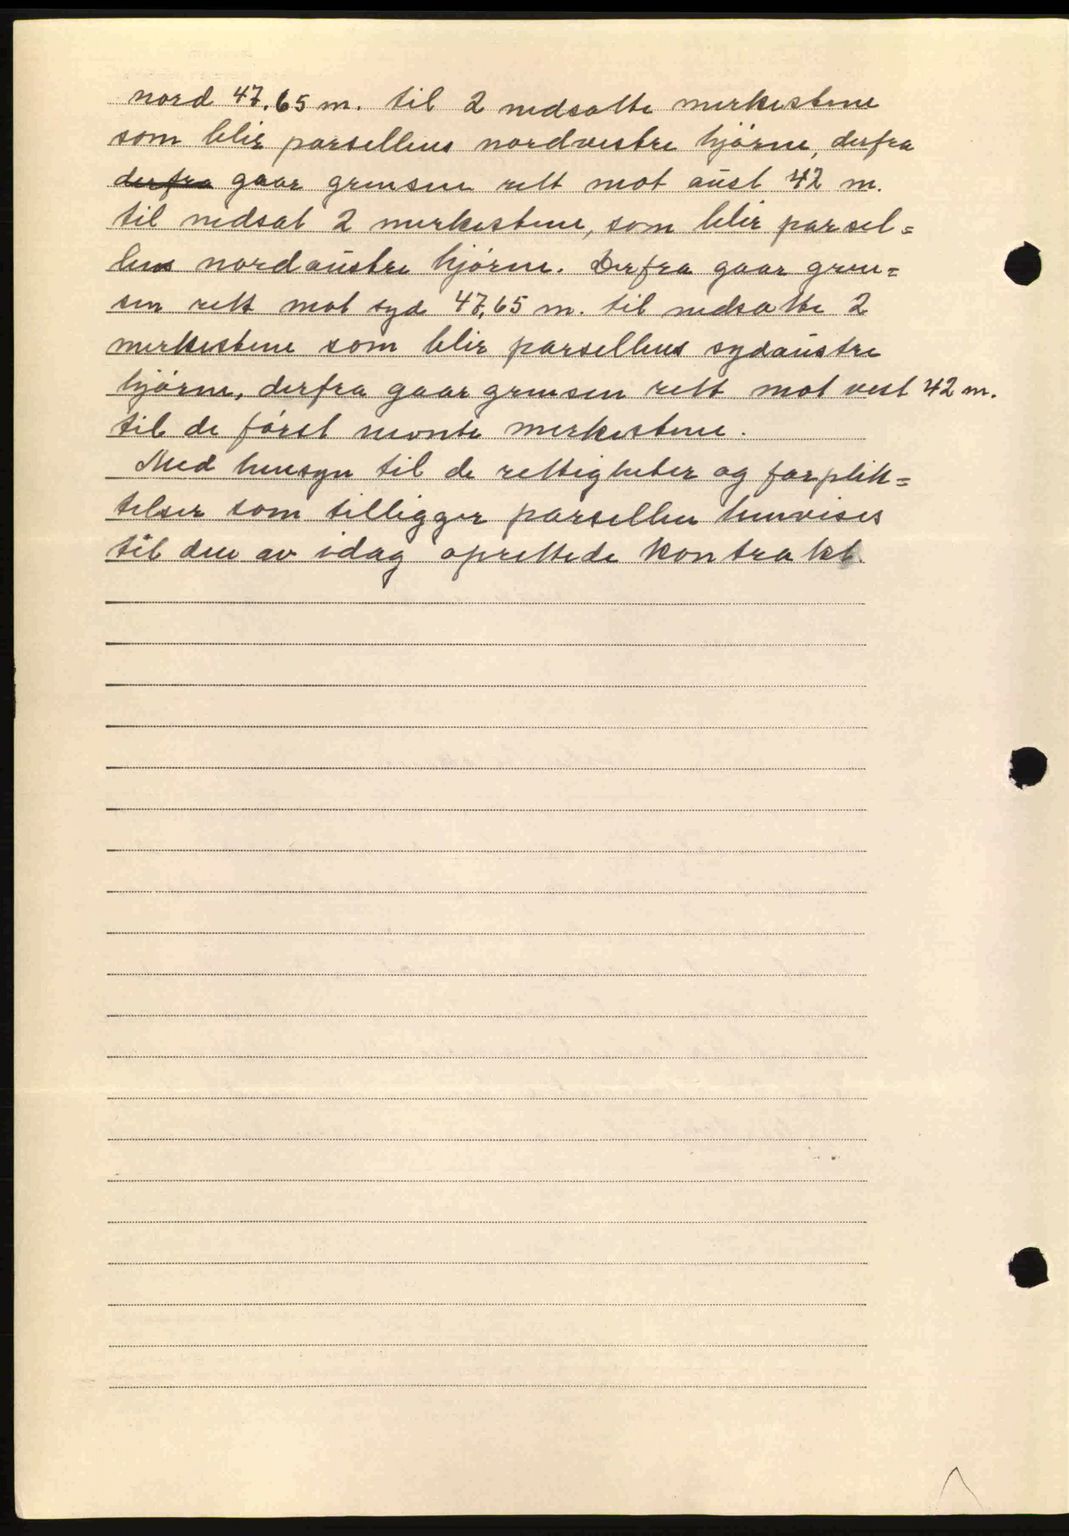 nord 47,65 m. til 2 nedsatte merkestene
som blir parsellens nordvestre hjørne, derfra
derfra gaar grensen rett mot aust 42 m.
til nedsat 2 merkestene, som blir parsel=
lens nordaustre hjørne. Derfra gaar gren=
sen rett mot syd 47,65 m. til nedsatte 2
merkestene som blir parsellens sydaustre
hjørne, derfra gaar grensen rett mot vest 42 m.
til de først nevnte merkestene.
Med hensyn til de rettigheter og forplik=
telser som tilligger parsellen henvises
til den av idag oprettede kontrakt.